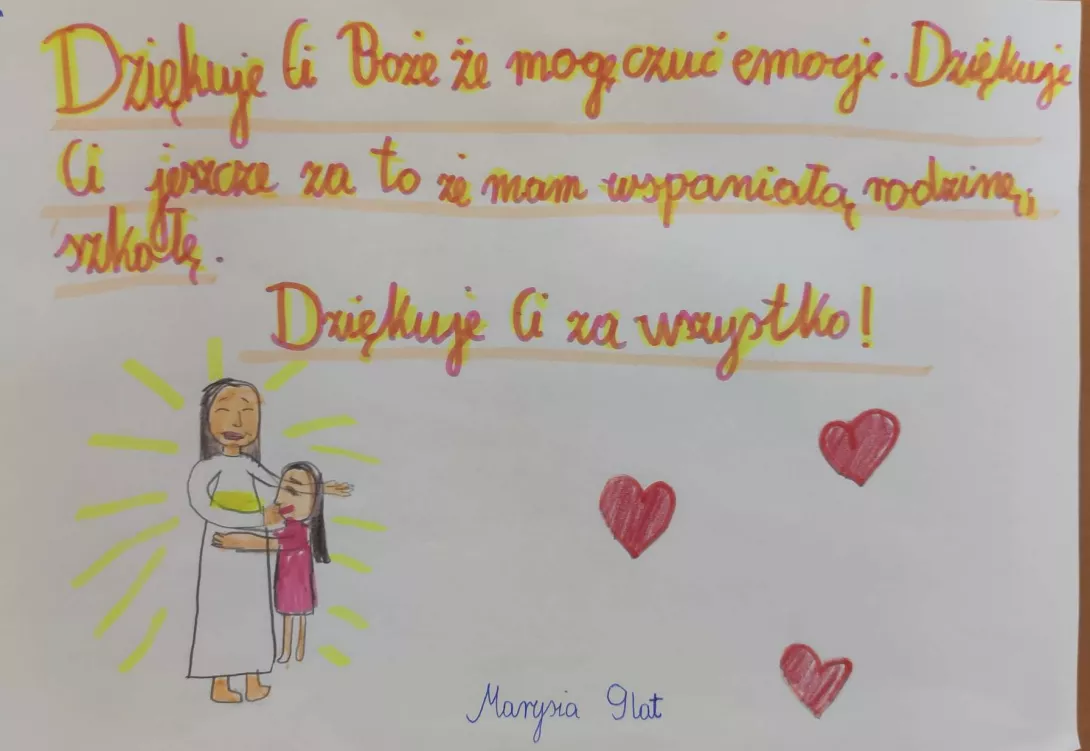 Dziękuje Ci Boże że mogę czuć emocje. Dziękuje
Ci jeszcze za to że mam wspaniałą rodzinę,
szkołę.
Dziękuje Ci za wszystko!
Marysia 9lat